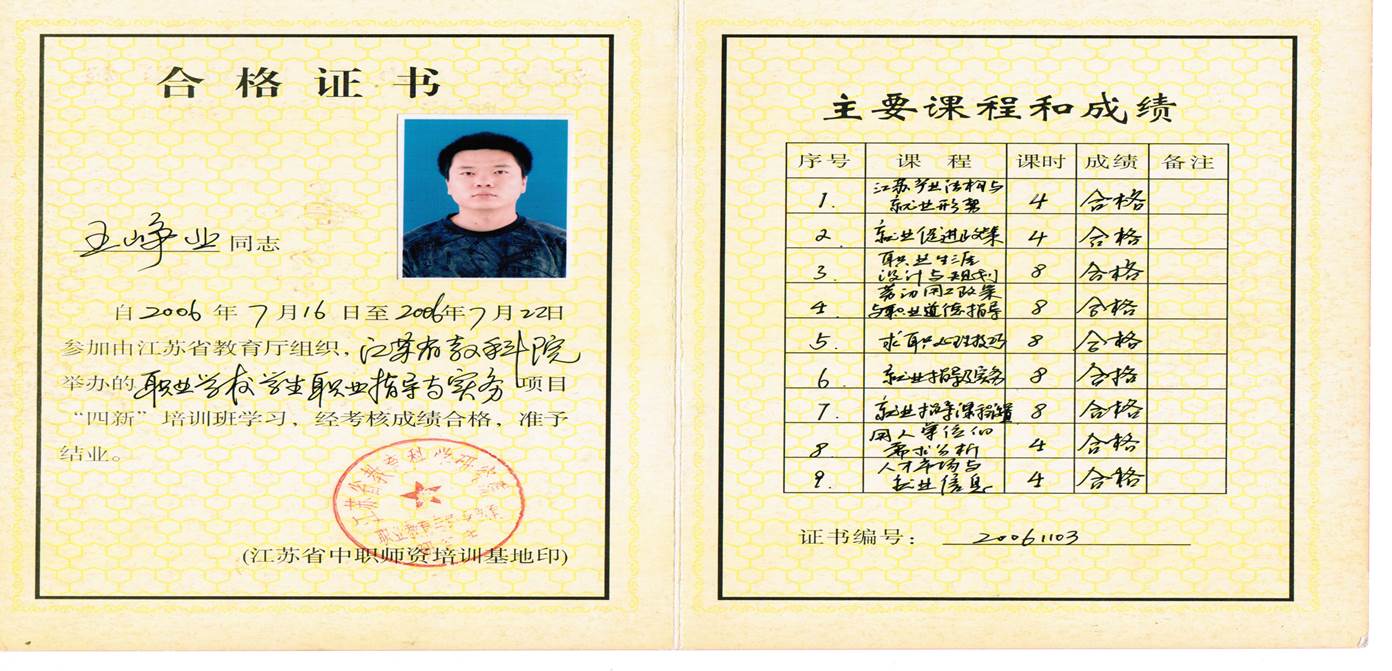 合格证书
王峥业 同志
自2006年7月16日至2006年7月22日
参加由江苏省教育厅组织，江苏省教科院
举办的职业学校学生职业指导与实务项目
“四新”培训班学习，经考核成绩合格，准予
结业。
江苏省教育科学研究院
(江苏省中职师资培训基地印)
主要课程和成绩
序号 课程 课时 成绩 备注
1. 江苏产业结构与就业形势 4 合格
2. 就业促进政策 4 合格
3. 职业生涯设计与规划 8 合格
4. 劳动用工政策与职业道德指导 8 合格
5. 求职心理技巧 8 合格
6. 就业指导及实务 8 合格
7. 就业指导课程设置 8 合格
8. 用人单位的需求分析 4 合格
9. 人才市场与就业信息 4 合格
证书编号： 20061103